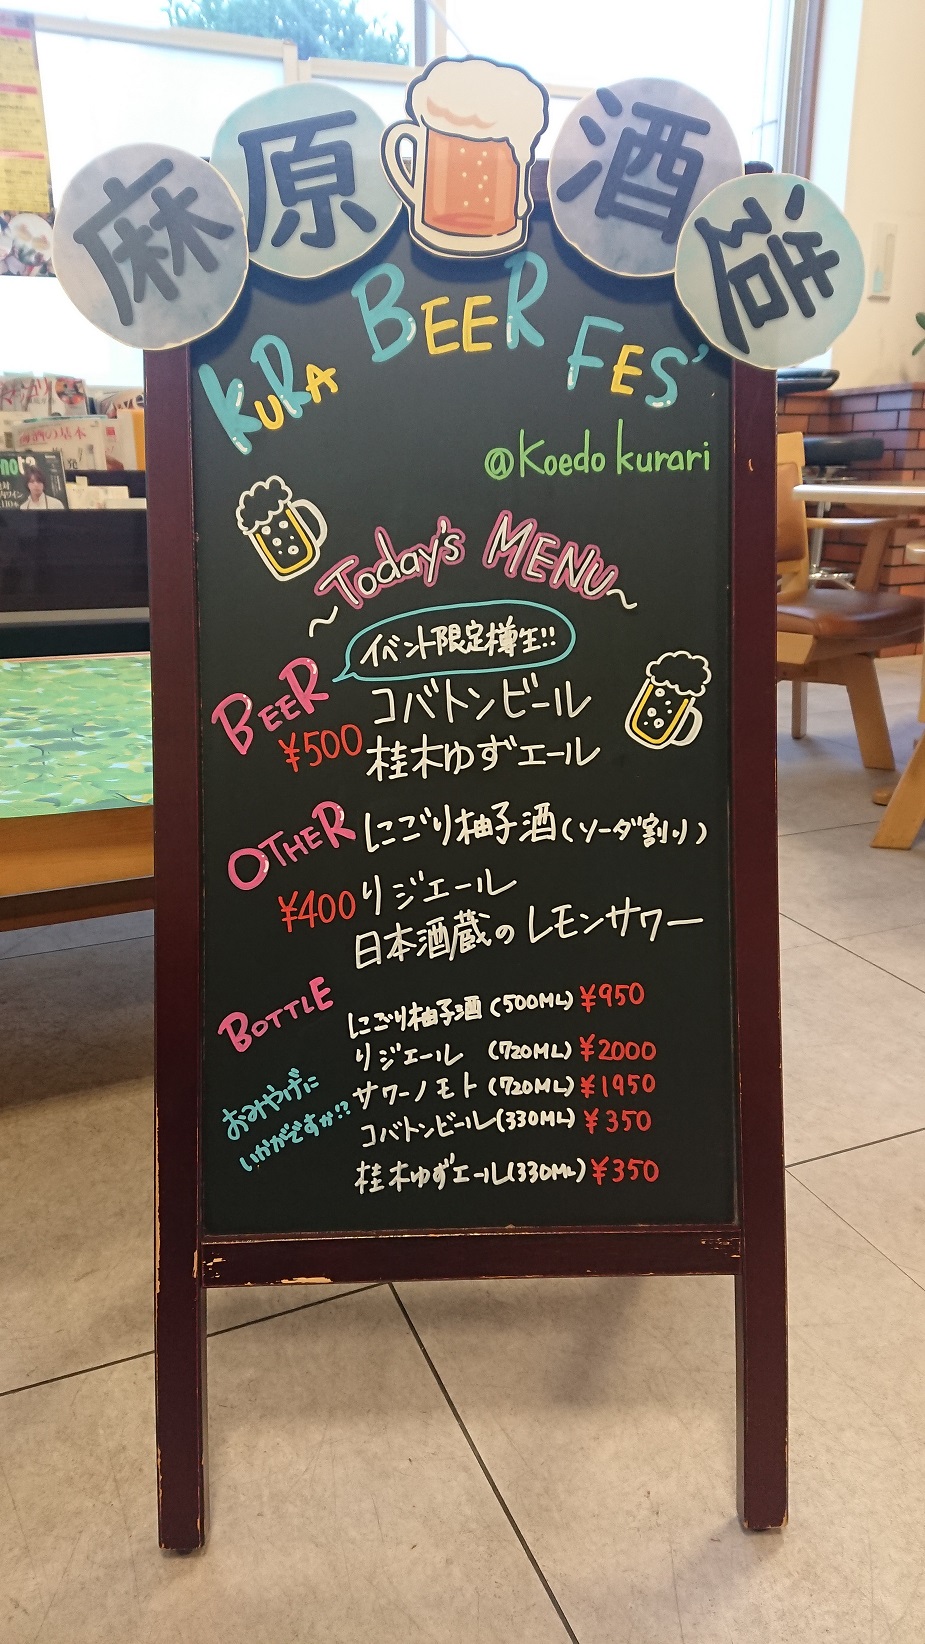 麻原酒造
KURA BEER FES'
@Koedo kurari
~Today's MENU~
イベント限定樽生!!
BEER コバトンビール
¥500 桂木ゆずエール
OTHER にごり柚子酒(ソーダ割り)
¥400 リジエール
日本酒蔵のレモンサワー
BOTTLE
にごり柚子酒(500ML) ¥950
リジエール (720ML) ¥2000
サワーノモト(720ML) ¥1950
コバトンビール(330ML) ¥350
桂木ゆずエール(330ML) ¥350
おみやげに
いかがですか!?
酒の基本